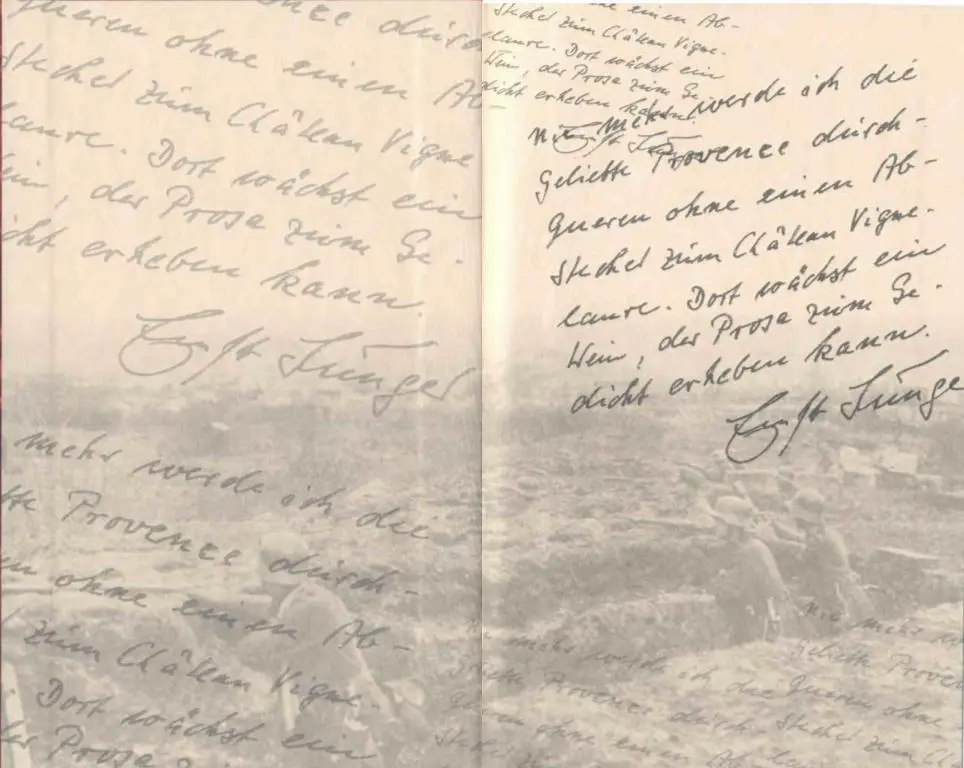 ohne einen Ab-
stecher zum Château Vigne-
laure. Dort wächst ein
Wein, der Prosa zum Ge-
dicht erheben kann.
Ernst Jünger
Nie mehr werde ich die
geliebte Provence durch-
queren ohne einen Ab-
stecher zum Château Vigne-
laure. Dort wächst ein
Wein, der Prosa zum Ge-
dicht erheben kann.
Ernst Jünge
durch
queren ohne einen Ab-
stecher zum Château Vigne
laure. Dort wächst ein
ein, der Prosa zum Ge-
dicht erheben kann.
Ernst Jünger
mehr werde ich die
bte Provence durch-
en ohne einen Ab-
zum Château Vigne-
Dort wächst ein
der Prosa zum
Nie mehr
geliebte Proven
mehr werde ich die
Provence durch-
queren ohne einen Ab-
queren ohne
stecher zum Châ